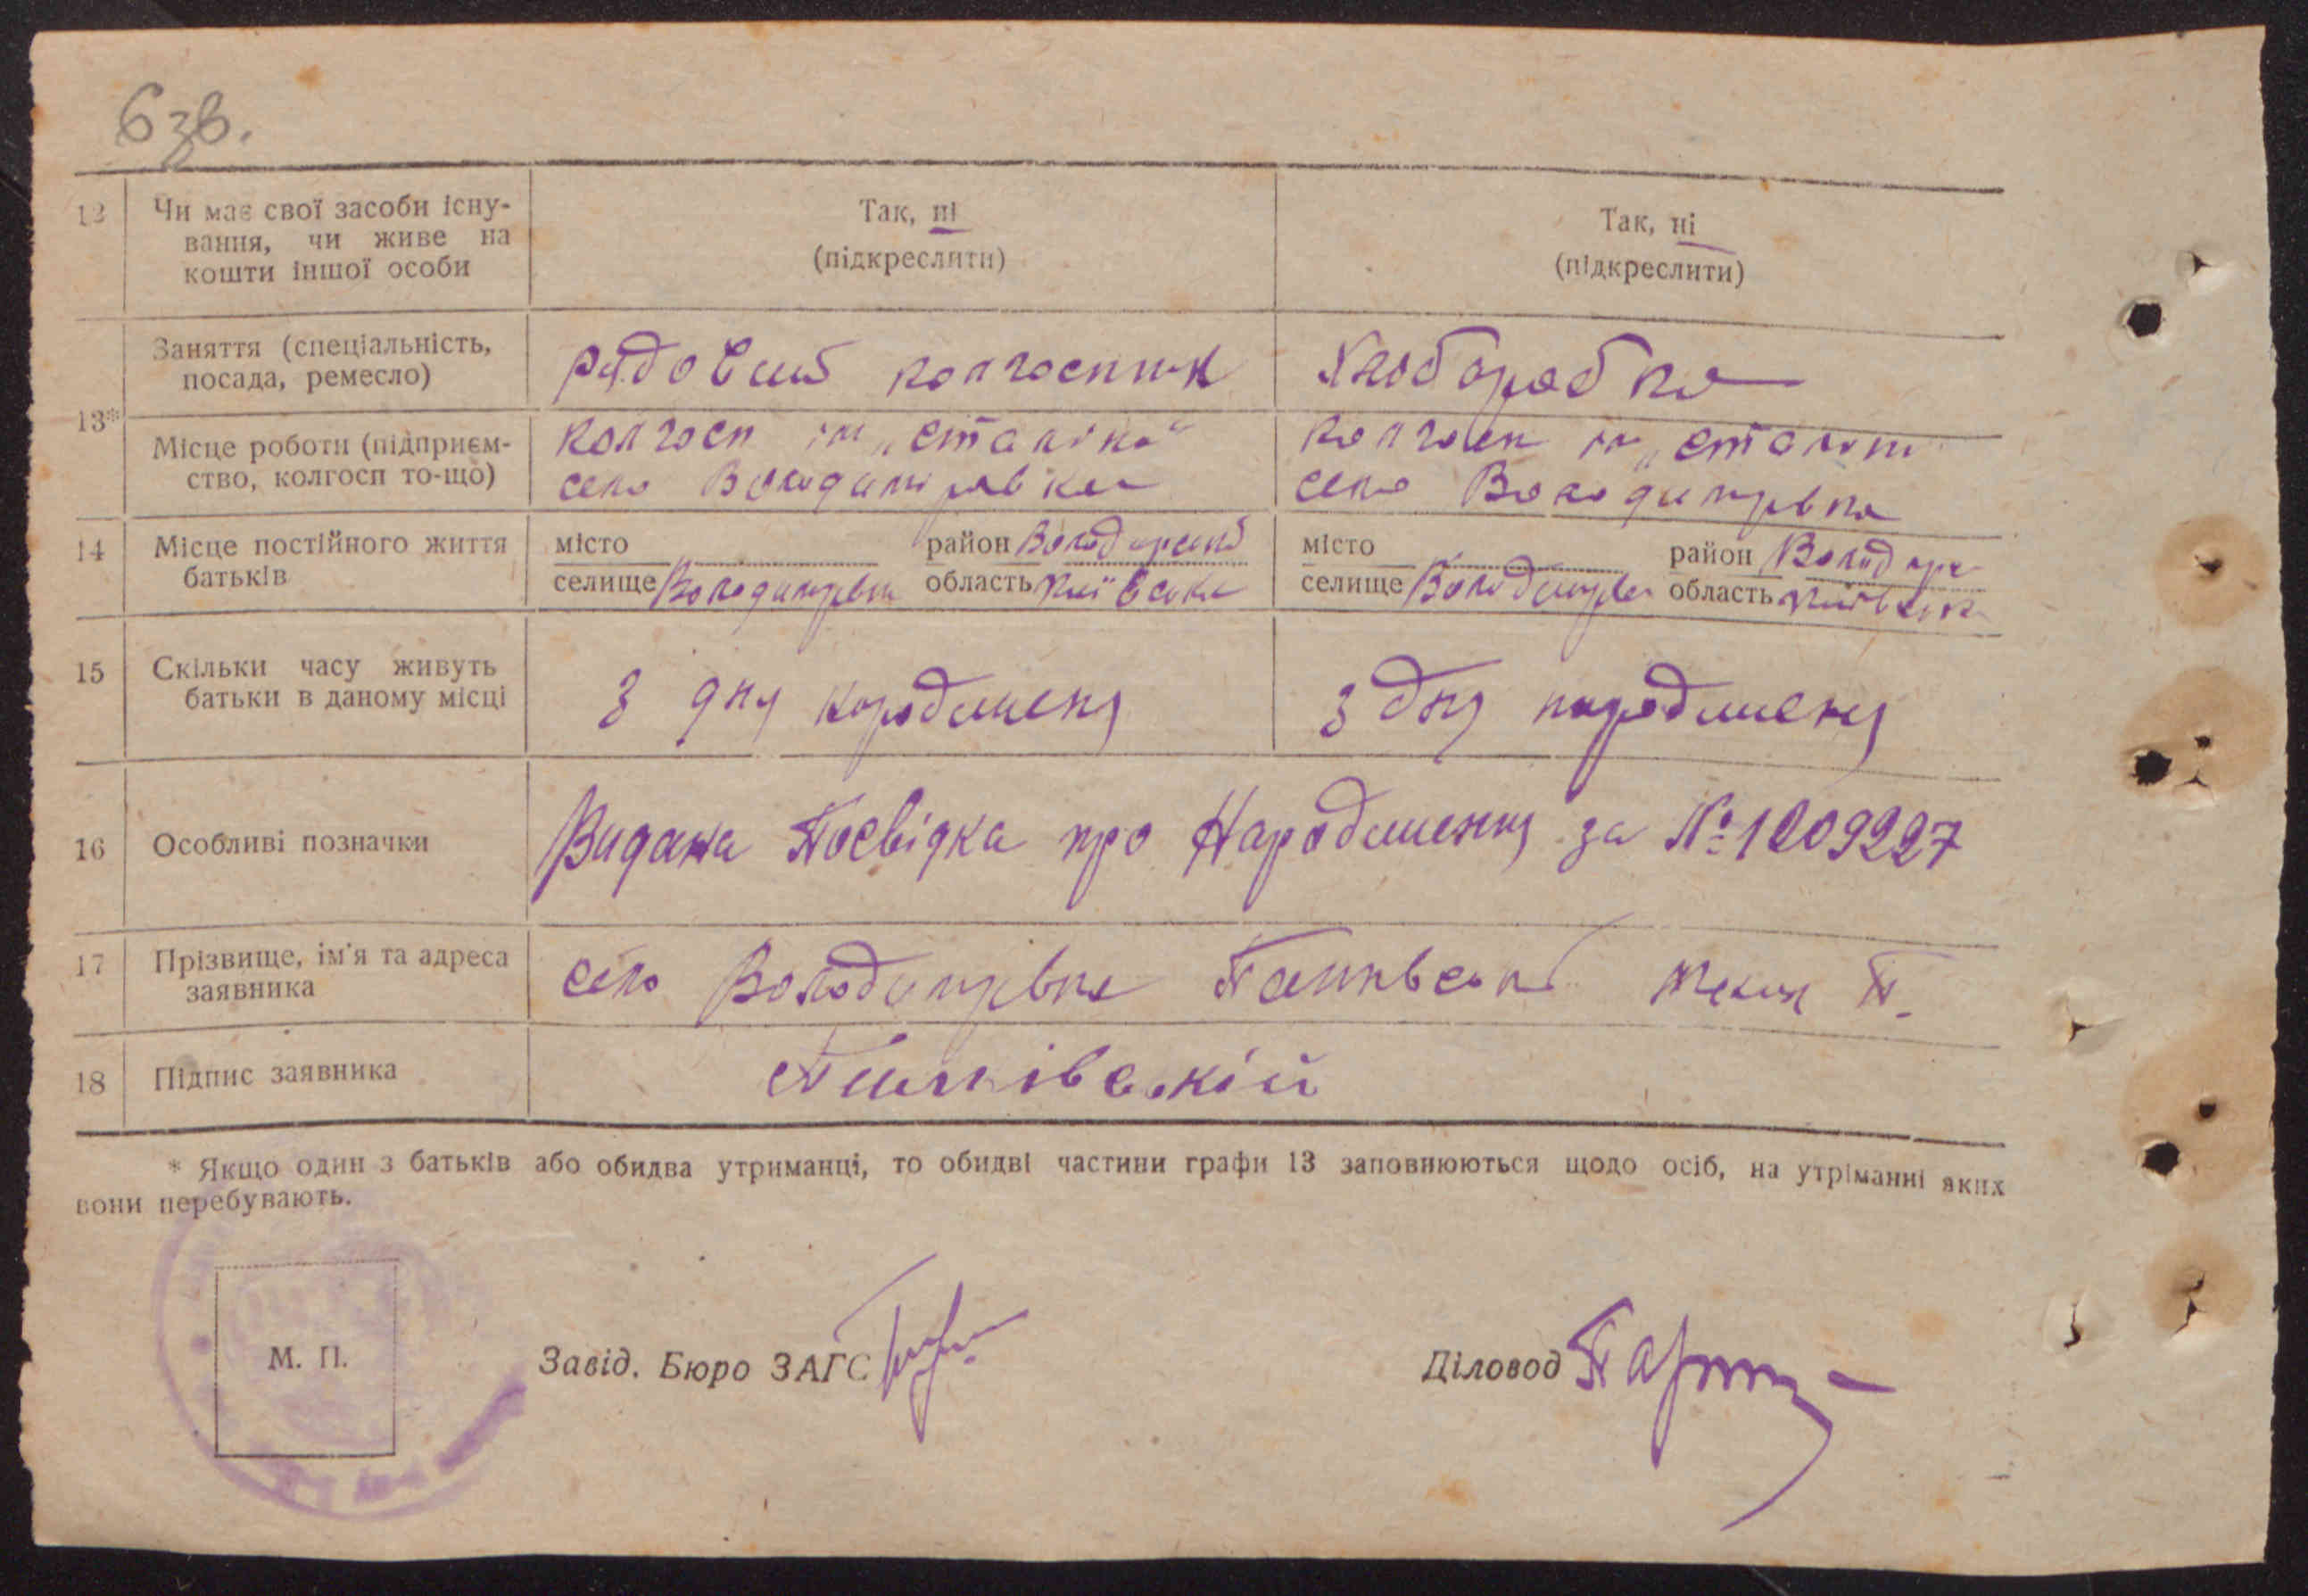 6 зв.
12 Чи має свої засоби існу- Так, ні Так, ні
вання, чи живе на (підкреслити) (підкреслити)
кошти іншої особи
Заняття (спеціальність, рядовий колгоспник Хліборобка
посада, ремесло)
13*
Місце роботи (підприєм- колгосп ім „Сталіна" колгосп ім „Сталіна"
ство, колгосп то-що) село Володимирівка село Володимирівка
14 Місце постійного життя місто район місто район
батьків селище область Київська селище область Київська
15 Скільки часу живуть З дня народження З дня народження
батьки в даному місці
16 Особливі позначки Видана Посвідка про Народження за № 1209227
17 Прізвище, ім'я та адреса село Володимирівка П.
заявника
18 Підпис заявника
* Якщо один з батьків або обидва утриманці, то обидві частини графи 13 заповнюються щодо осіб, на утріманні яких
вони перебувають.
М. П. Завід. Бюро ЗАГС Діловод